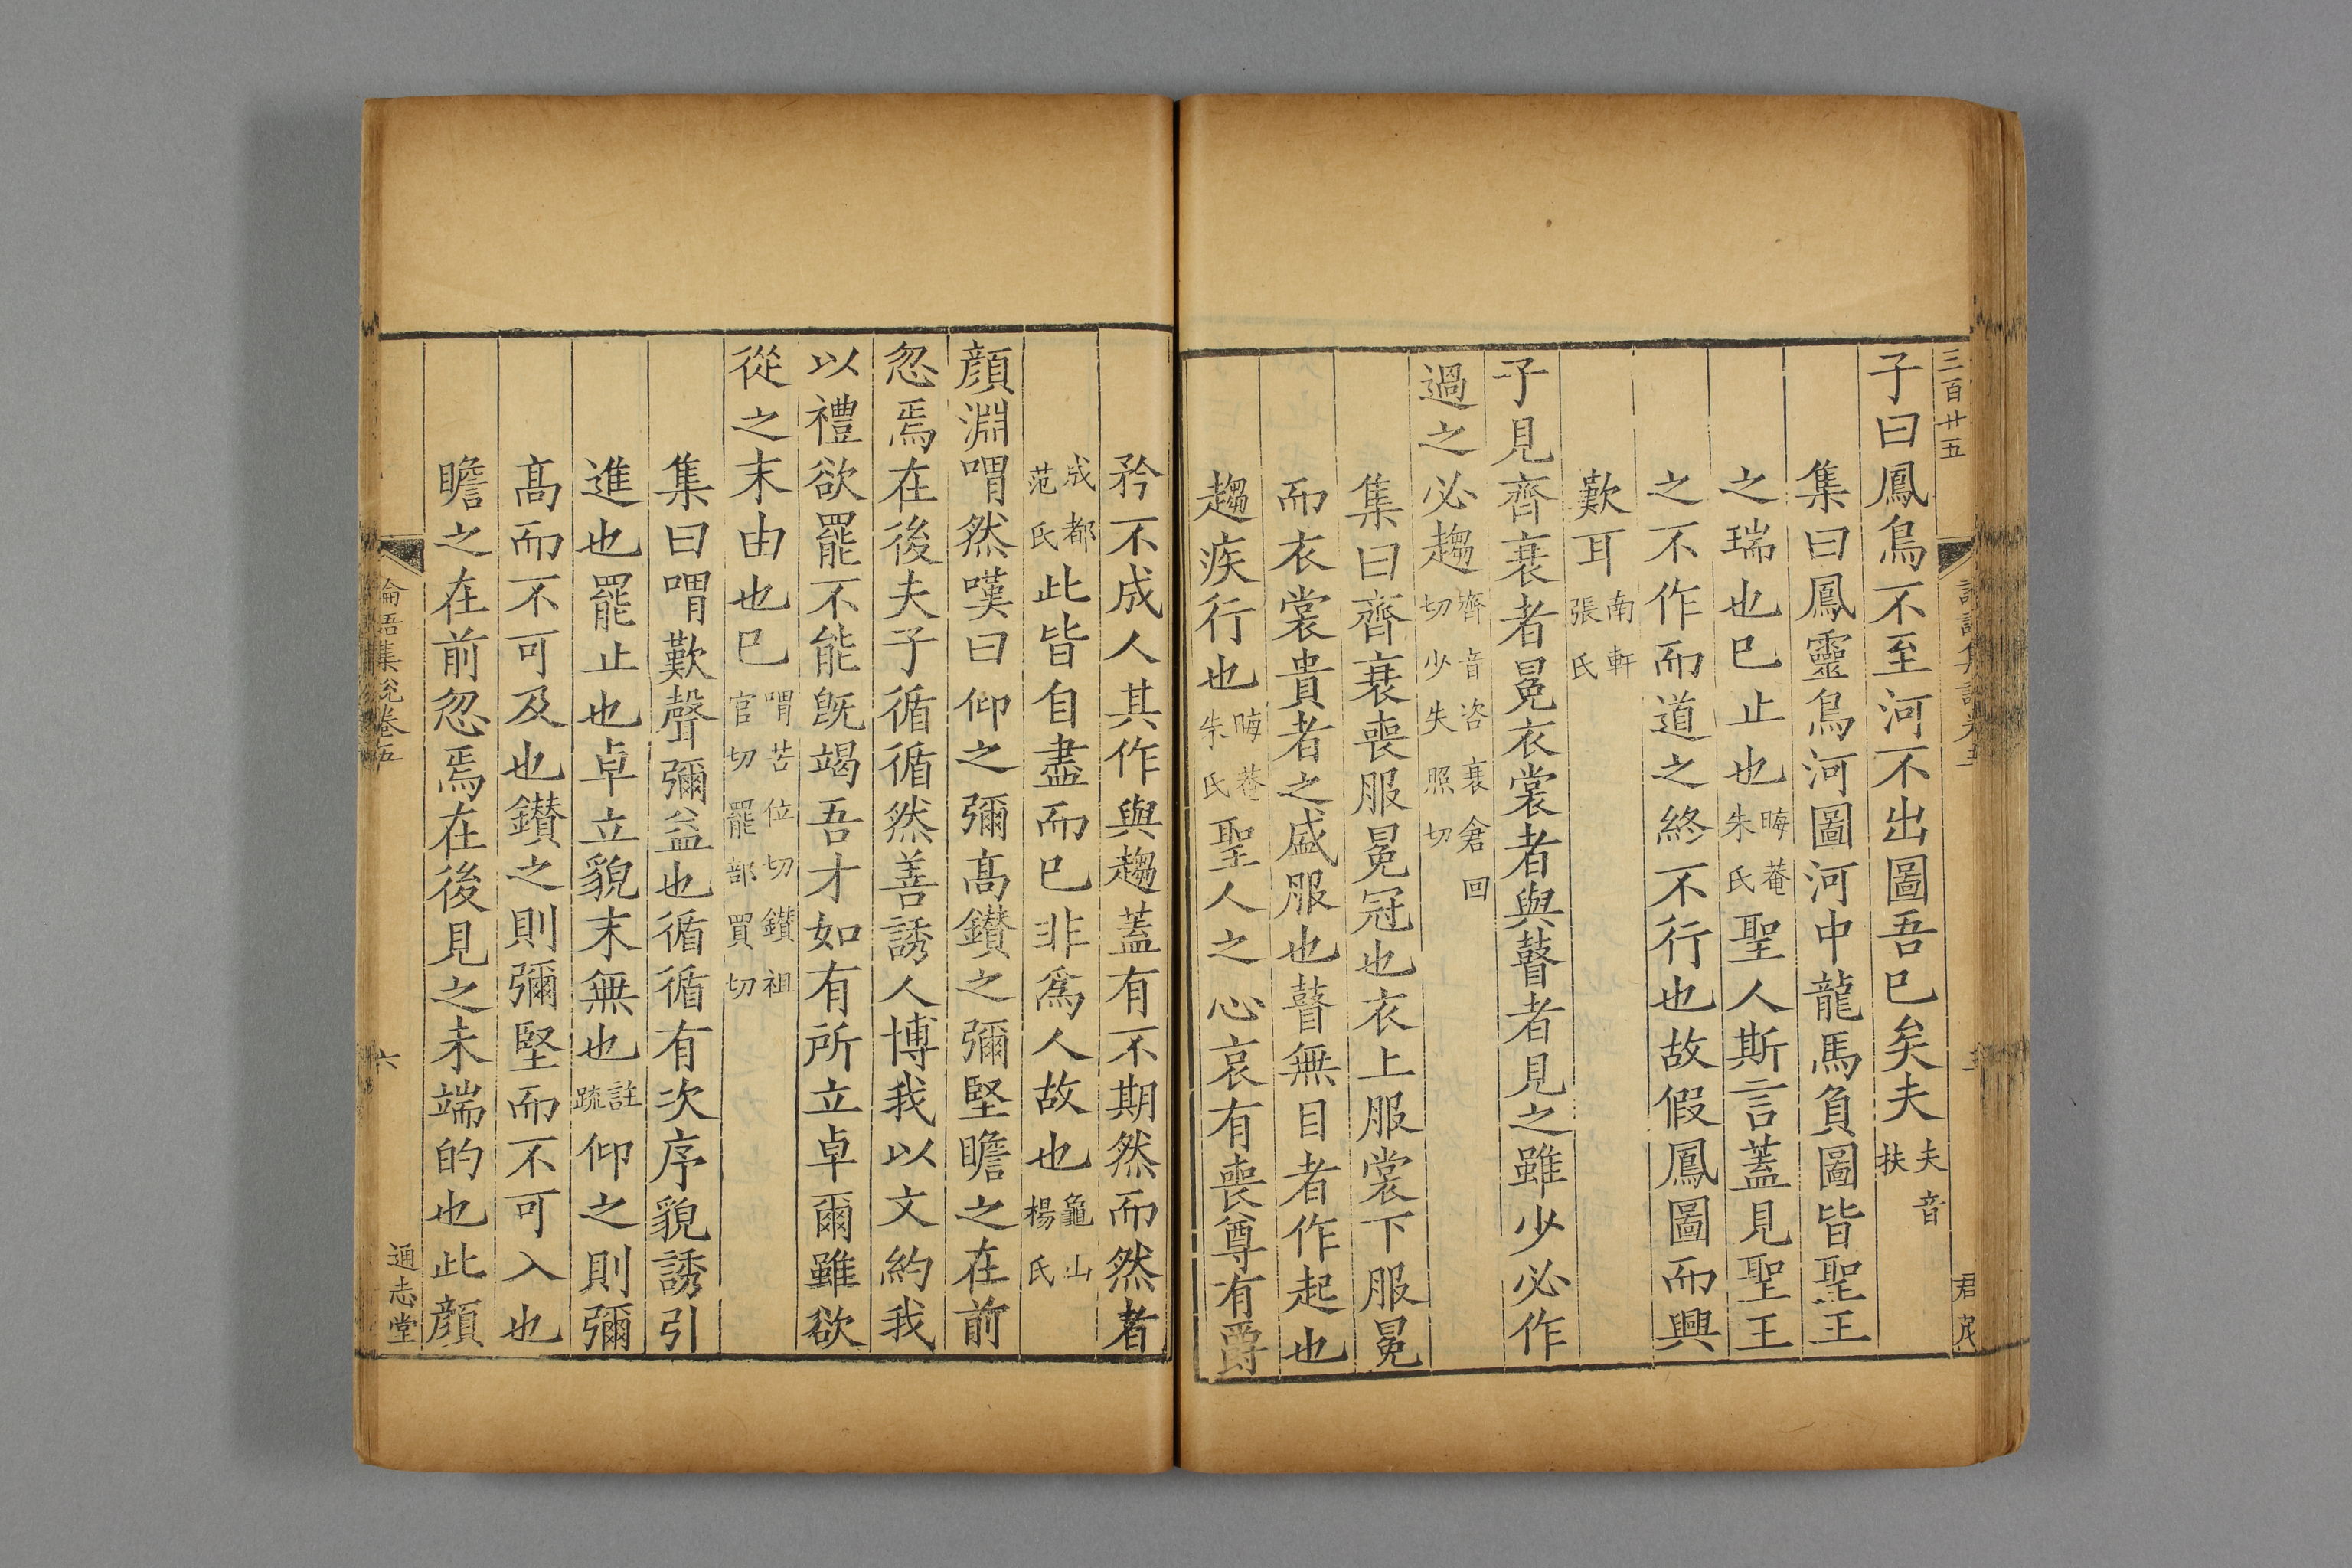 三百廿五
君茂
子曰鳳鳥不至河不出圖吾已矣夫夫音扶
集曰鳳靈鳥河圖河中龍馬負圖皆聖王
之瑞也已止也晦菴朱氏聖人斯言蓋見聖王
之不作而道之終不行也故假鳳圖而興
歎耳南軒張氏
子見齊衰者冕衣裳者與瞽者見之雖少必作
過之必趨齊音咨衰倉回切少失照切
集曰齊衰喪服冕冠也衣上服裳下服冕
而衣裳貴者之盛服也瞽無目者作起也
趨疾行也晦菴朱氏聖人之心哀有喪尊有爵
矜不成人其作與趨蓋有不期然而然者
成都范氏此皆自盡而已非爲人故也龜山楊氏
顔淵喟然嘆曰仰之彌高鑚之彌堅瞻之在前
忽焉在後夫子循循然善誘人博我以文約我
以禮欲罷不能旣竭吾才如有所立卓爾雖欲
從之末由也已喟苦位切鑚祖官切罷部買切
集曰喟歎聲彌益也循循有次序貌誘引
進也罷止也卓立貌末無也註疏仰之則彌
高而不可及也鑚之則彌堅而不可入也
瞻之在前忽焉在後見之未端的也此顔
論語集說卷五
六
通志堂